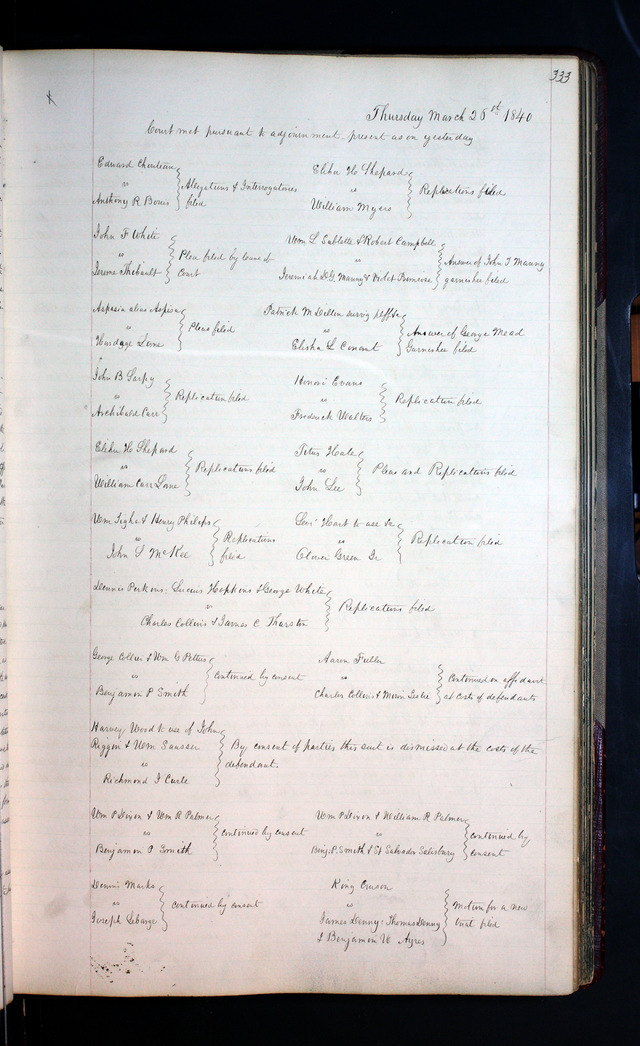 333
Thursday March 26st 1840
Court met pursuant to adjournment present as on yesterday
Edward Chouteau
vs
Anthony R Bouis
Allegations & Interrogatories
filed
Elihu H Shepard
vs
William Myers
Replications filed
John F White
vs
Jerome Thibault
Plea filed by leave of
Court
Wm L Sublette & Robert Campbell
vs
Jeremiah D G. Manny &
Answer of John T Manny
garnishee filed
Aspasia alias Aspisa
vs
Hardage Lane
Pleas filed
Patrick M Dillon surviv plffs
vs
Elisha L Conant
Answer of George Mead
Garnishee filed
John B Sarpy
vs
Archibald Carr
Replication filed
Honori Evans
vs
Frederick Walters
Replication filed
Elihu H Shepard
vs
William Carr Lane
Replications filed
Titus Hale
vs
John Lee
Pleas and Replications filed
Wm Tighe & Henry Philips
vs
John S McKee
Replications
filed
Levi Hart to use &c
vs
Oliver Green Jr
Replication filed
Dennis Perkins, Lucius Hopkins & George White
vs
Charles Collins & James C Thurston
Replications filed
George Collier & Wm G Pettus
vs
Benjamin P Smith
continued by consent
Aaron Fuller
vs
Charles Collins & Leslie
Continued on affidavit
at costs of defendants
Harvey Wood to use of John
Riggin & Wm Sausser
vs
Richmond J Curle
By consent of parties this suit is dismissed at the costs of the
defendant.
Wm P Dixon & Wm R Palmer
vs
Benjamin P Smith
continued by consent
Wm P Dixon & William R Palmer
vs
Benj. P. Smith & St Salvador Salisbury
continued by
consent
Dennis Marks
vs
Joseph Lebarge
continued by consent
King Cruson
vs
James Denny, Thomas Denny
& Benjamin W Ayres
Motion for a new
trial filed